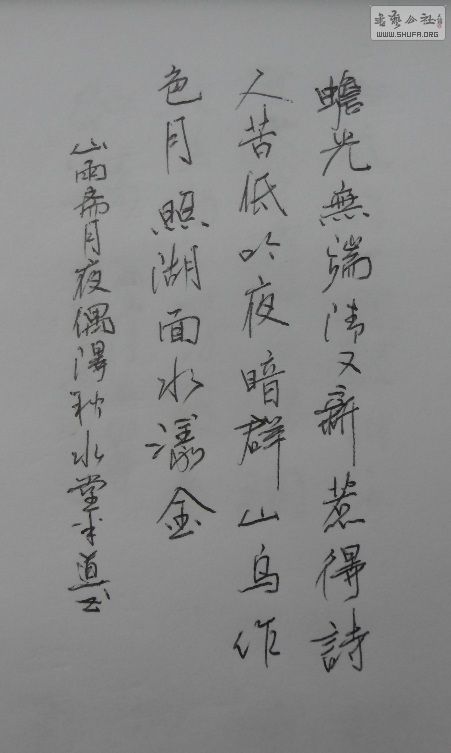 蟾光無端清又新惹得詩
人苦低吟夜暗群山烏作
色月照湖面水漾金
山雨斋月夜偶得秋水堂半道书
书艺公社
WWW.SHUFA.ORG